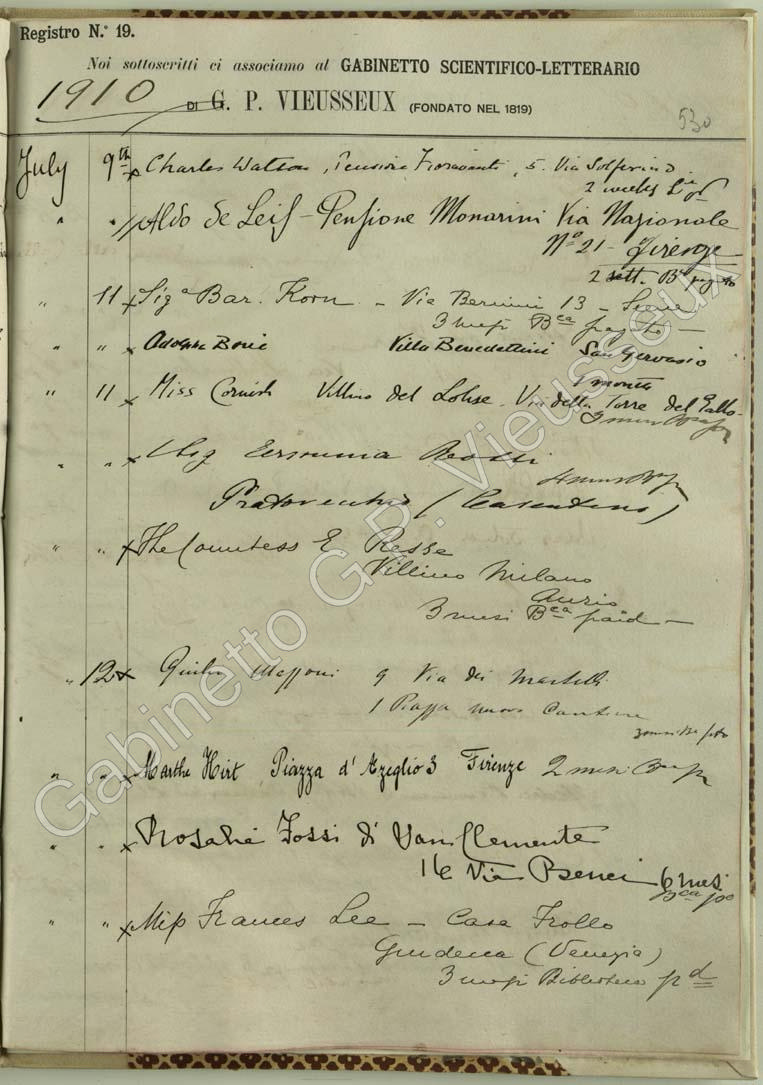 Registro N.° 19.
Noi sottoscritti ci associamo al GABINETTO SCIENTIFICO-LETTERARIO
1910 DI G. P. VIEUSSEUX (FONDATO NEL 1819)
530
July 9th x Charles Watson, Pensione Fioravanti, 5. Via Solferino
2 weeks
" " // Aldo de Leis - Pensione Monarini Via Nazionale
N° 21 - Firenze
2 sett. Bca
" 11 x Siga Bar. Korn - Via Bernini 13 -
3 mesi Bca pagato -
" " x Bovie Villa Benedettini San Gervasio
1 month
" 11 x Miss Cornish Villino del Via della Torre del Gallo -
3 mesi
" " x Sig Rossi
Pratovecchio (Casentino)
" " x The Countess E Resse
Villino Milano
3 mesi Bca paid -
" 12 x 9 Via dei Martelli
1 Piazza
" " x Marthe Hirt Piazza d'Azeglio 3 Firenze 2 mesi
" " x Rosalie Fossi di San Clemente
16 Via Benci 6 mesi
Bca
" " x Miss Frances Lee - Casa Frollo
Giudecca (Venezia)
3 mesi Biblioteca pd
Gabinetto G.P. Vieusseux